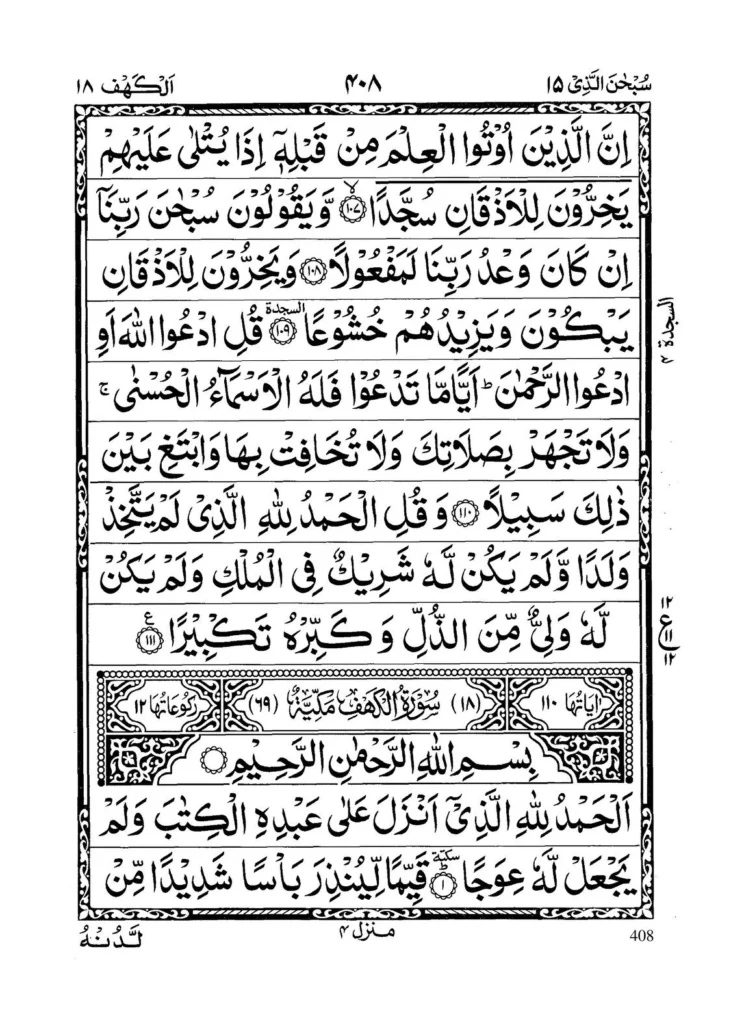 سُبْحٰنَ الَّذِیْ ۱۵
۴۰۸
اَلْکَهْف ۱۸
اِنَّ الَّذِیْنَ اُوْتُوا الْعِلْمَ مِنْ قَبْلِهٖۤ اِذَا یُتْلٰی عَلَیْهِمْ
یَخِرُّوْنَ لِلْاَذْقَانِ سُجَّدًا ۙ﴿۱۰۷﴾ وَّیَقُوْلُوْنَ سُبْحٰنَ رَبِّنَاۤ
اِنْ کَانَ وَعْدُ رَبِّنَا لَمَفْعُوْلًا ﴿۱۰۸﴾ وَیَخِرُّوْنَ لِلْاَذْقَانِ
یَبْکُوْنَ وَیَزِیْدُهُمْ خُشُوْعًا ﴿۱۰۹﴾ السجدة قُلِ ادْعُوا اللّٰهَ اَوِ
السجدة ۴
ادْعُوا الرَّحْمٰنَ ؕ اَیًّامَّا تَدْعُوْا فَلَهُ الْاَسْمَآءُ الْحُسْنٰی ۚ
وَلَا تَجْهَرْ بِصَلَاتِكَ وَلَا تُخَافِتْ بِهَا وَابْتَغِ بَیْنَ
ذٰلِكَ سَبِیْلًا ﴿۱۱۰﴾ وَقُلِ الْحَمْدُ لِلّٰهِ الَّذِیْ لَمْ یَتَّخِذْ
وَلَدًا وَّلَمْ یَکُنْ لَّهٗ شَرِیْكٌ فِی الْمُلْكِ وَلَمْ یَکُنْ
لَّهٗ وَلِیٌّ مِّنَ الذُّلِّ وَکَبِّرْهُ تَکْبِیْرًا ﴿۱۱۱﴾ ع
۱۲
ع ۱۱
۱۲
اٰیَاتُهَا ۱۱۰
(۱۸) سُوْرَةُ الْکَهْفِ مَکِّیَّةٌ (۶۹)
رُکُوْعَاتُهَا ۱۲
بِسْمِ اللّٰهِ الرَّحْمٰنِ الرَّحِیْمِ
اَلْحَمْدُ لِلّٰهِ الَّذِیْۤ اَنْزَلَ عَلٰی عَبْدِهِ الْکِتٰبَ وَلَمْ
یَجْعَلْ لَّهٗ عِوَجًا ﴿۱﴾ سکتة قَیِّمًا لِّیُنْذِرَ بَاْسًا شَدِیْدًا مِّنْ
408
منزل ۴
لَّدُنْهُ